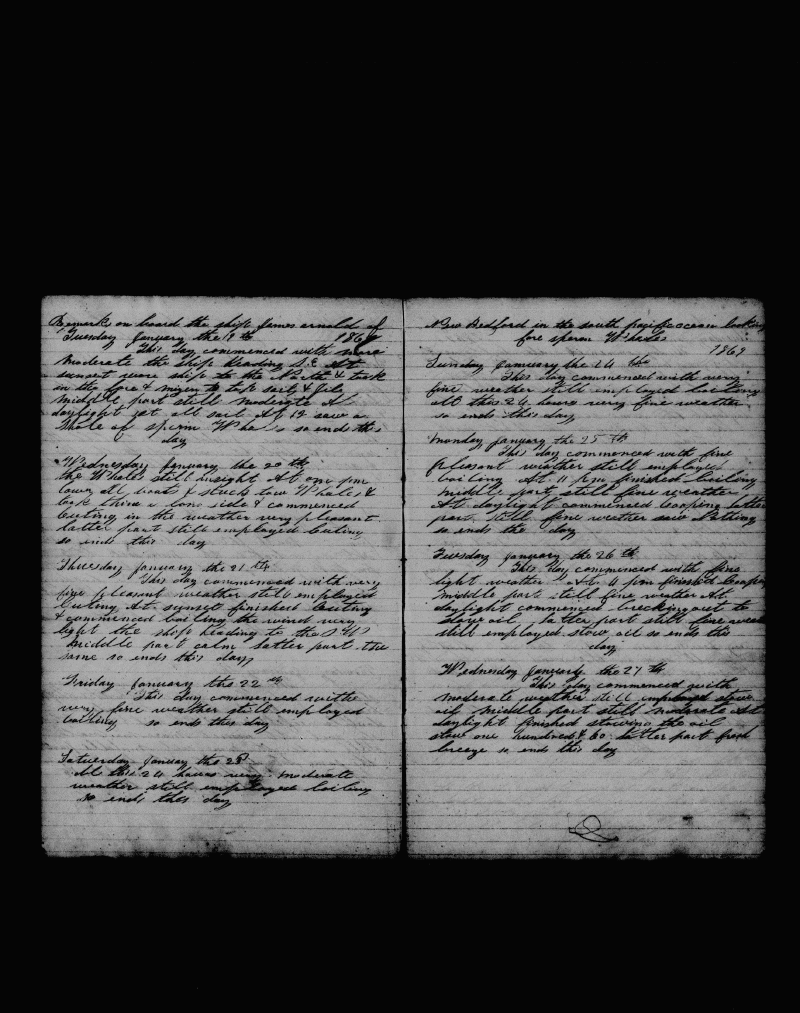 Remarks on board the ship James arnold of
Tuesday January the 19 th 1869
This day commenced with more
moderate the ship heading S.E At
sunset wore ship to the North & took
in the fore & mizen top sail & Jib
middle part still moderate At
daylight set all sail At 12 saw a
Shole of sperm Whales so ends this
day
Wednesday January the 20 th
the Whales still insight At one pm
lower all boats & stuck tow Whales &
took thim a long side & commenced
Cuting in the weather very pleasant
latter part still employed Cuting
so ends this day
Thursday January the 21 th
This day commenced with very
fine pleasant weather still employed
Cuting At sunset finished Cuting
& commenced boiling the wind very
light the ship heading to the S W
middle part calm latter part the
same so ends this day
Friday January the 22 nd
This day commenced withe
very fine weather still employed
boiling so ends this day
Saturday January the 23
All this 24 houres very moderate
weather still employed boiling
so ends this day
New Bedford in the south pacific ocean looking
fore sperm Whales
1869
Sunday January the 24 th
This day commenced with very
fine weather still employed boiling
all this 24 hours very fine weather
so ends this day
Monday January the 25 th
This day commenced with fine
pleasant weather still employed
boiling At 11 pm finished boiling
middle part still fine weather
At daylight commenced Cooping latter
part still fine weather saw
so ends the day
Tuesday January the 26 th
This day commenced with fine
light weather At 4 pm finished Cooping
middle part still fine weather At
daylight commenced brecking out to
stow oil latter part still fine weather
still employed stow oil so ends this
day
Wednesday January the 27 th
This day commenced with
moderate weather still employed stow
oil middle part still moderate At
daylight finished stowing the oil
stow one hundred & 60 latter part fresh
breeze so ends this day